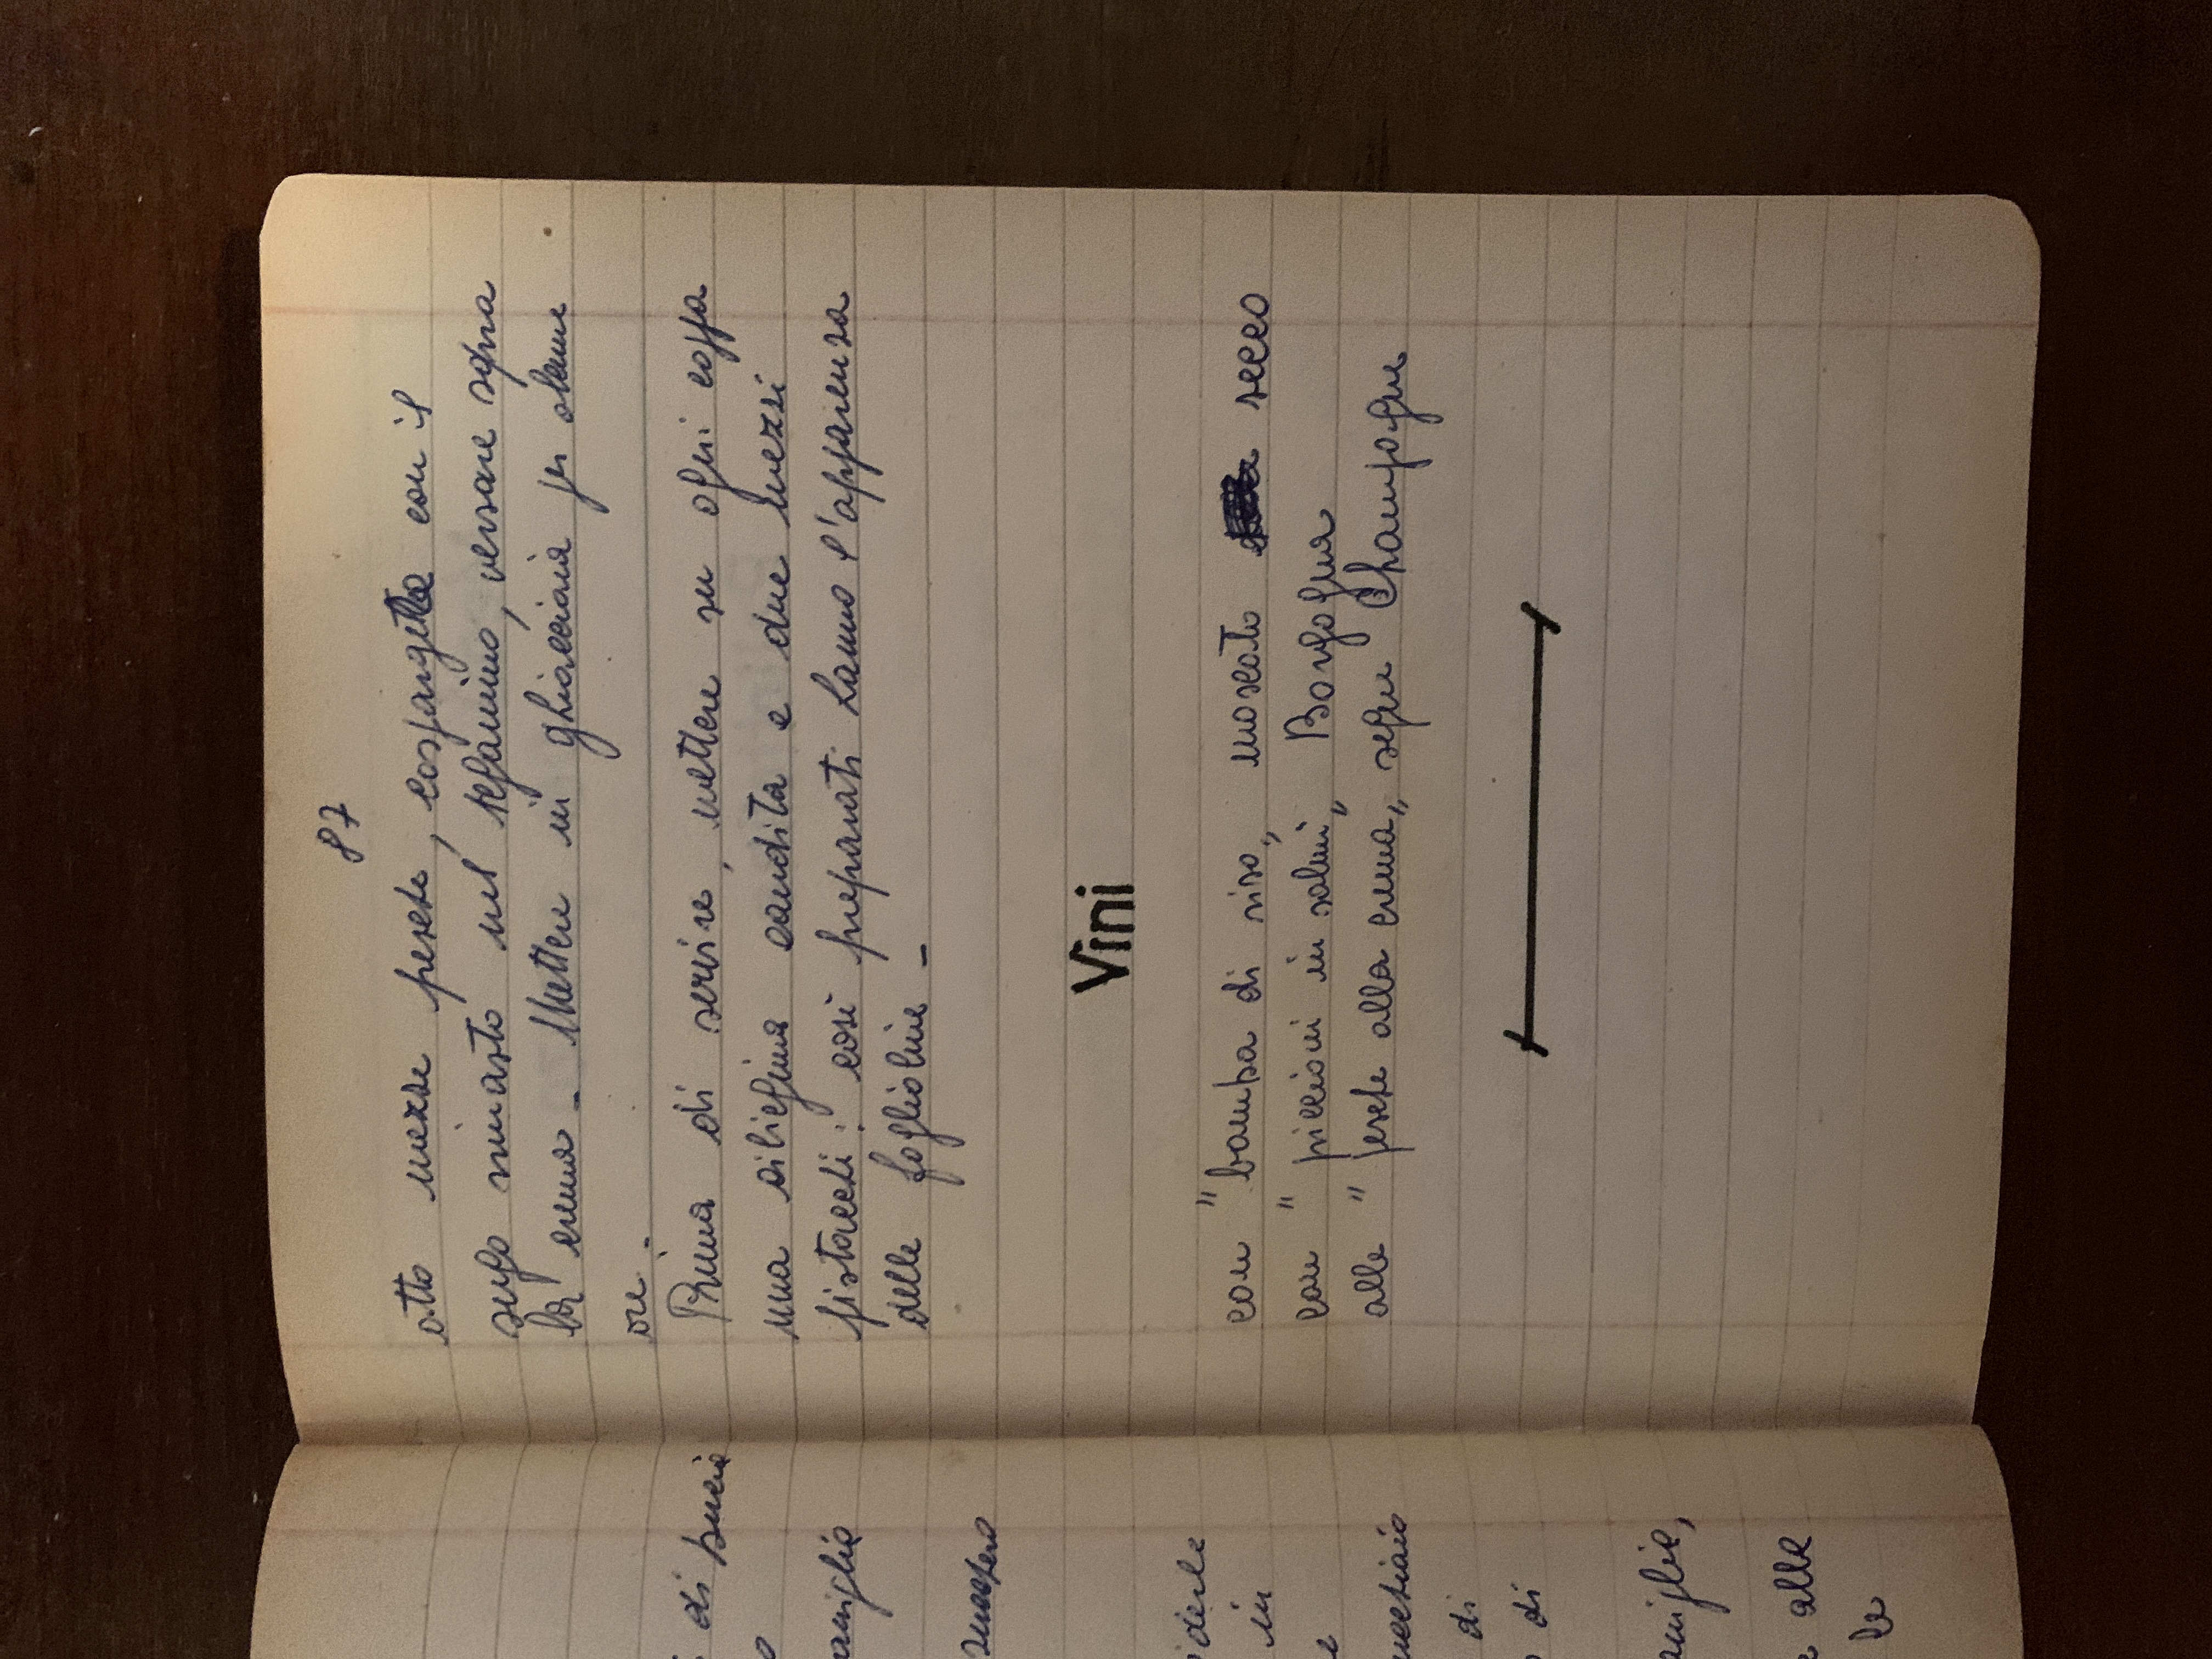 di buccia
aniglia
zucchero
iderle
in
e
ucchiaio
di
di
aniglia,
e alle
le
87
otto mezze pesche, cospargerle con il
sugo rimasto nel tegamino, versare sopra
la crema - Mettere in ghiacciaia per alcune
ore -
Prima di servire, mettere su ogni coppa
una ciliegina candita e due mezzi
pistacchi: così preparati hanno l'apparenza
delle foglioline -
Vini
con "bomba di riso„ moscato secco
con "piccioni in salmì„ Borgogna
alle "pesche alla crema„ segue Champagne